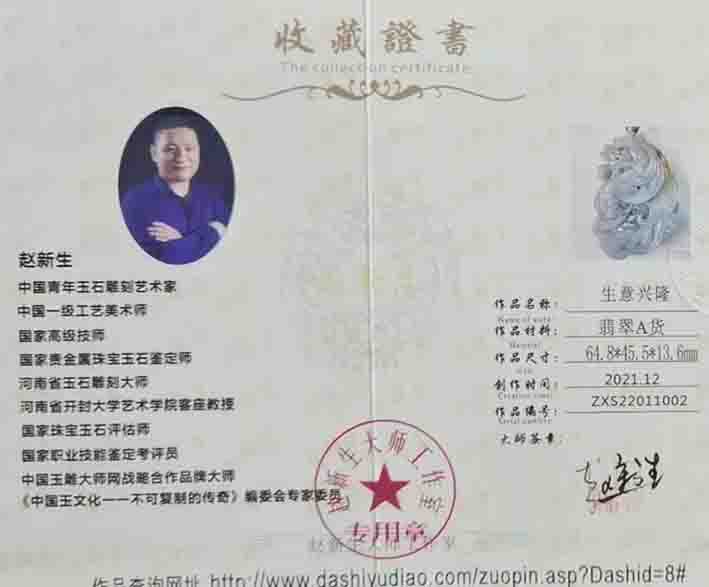 收藏證書
The collection certificate
赵新生
中国青年玉石雕刻艺术家
中国一级工艺美术师
国家高级技师
国家贵金属珠宝玉石鉴定师
河南省玉石雕刻大师
河南省开封大学艺术学院客座教授
国家珠宝玉石评估师
国家职业技能鉴定考评员
中国玉雕大师网战略合作品牌大师
《中国玉文化一一不可复制的传奇》编委会专家委员
作品名称: 生意兴隆
Name of works
作品材料: 翡翠A货
Material
作品尺寸: 64.8*45.5*13.6mm
创作时间: 2021.12
Creation time
作品编号: ZXS22011002
Serial number
大师签章:
赵新生
赵新生大师工作室
专用章
赵新生大师工作室
作品查询网址 http://www.dashiyudiao.com/zuopin.asp?Dashid=8#